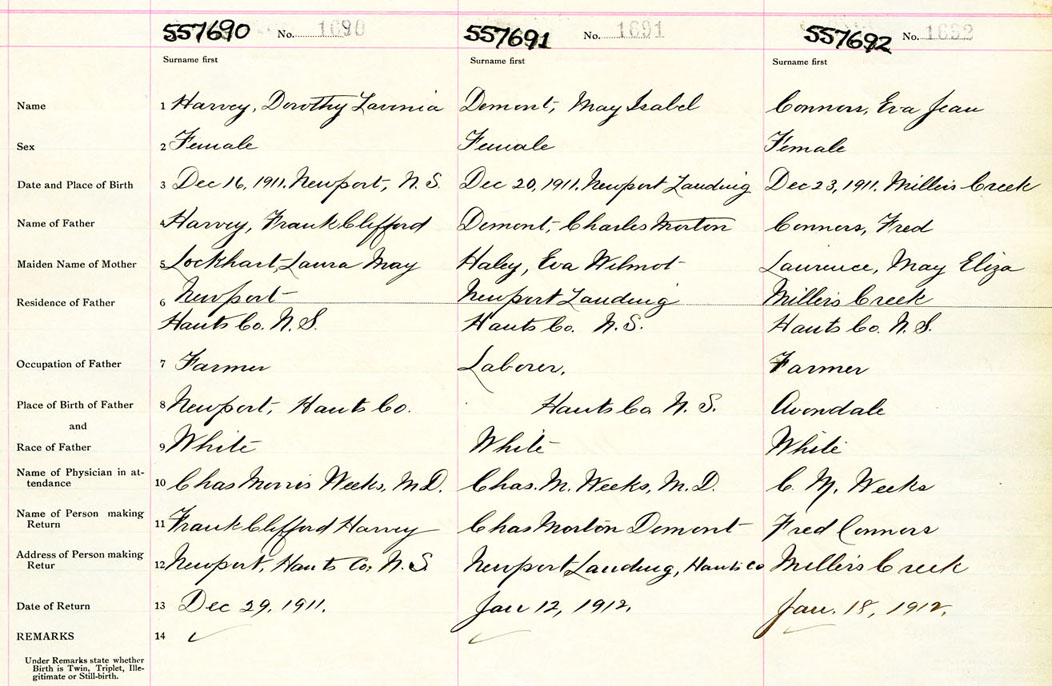 557690 No. 1690 557691 No. 1691 557692 No. 1692
Surname first Surname first Surname first
Name 1 Harvey, Dorothy Lavinia Demont, May Isabel Connors, Eva Jean
Sex 2 Female Female Female
Date and Place of Birth 3 Dec 16, 1911. Newport, N.S. Dec 20, 1911. Newport Landing Dec 23, 1911. Millers Creek
Name of Father 4 Harvey, Frank Clifford Demont, Charles Morton Connors, Fred
Maiden Name of Mother 5 Lockhart, Laura May Haley, Eva Wilmot Laurence, May Eliza
Residence of Father 6 Newport Newport Landing Millers Creek
Hants Co. N.S. Hants Co. N.S. Hants Co. N.S.
Occupation of Father 7 Farmer Laborer, Farmer
Place of Birth of Father 8 Newport, Hants Co. Hants Co N.S. Avondale
and
Race of Father 9 White White White
Name of Physician in at-
tendance 10 Chas Morris Weeks, M.D. Chas. M. Weeks, M.D. C. M. Weeks
Name of Person making
Return 11 Frank Clifford Harvey Chas Morton Demont Fred Connors
Address of Person making
Retur 12 Newport, Hants Co, N.S. Newport Landing, Hants Co Millers Creek
Date of Return 13 Dec 29, 1911. Jan 12, 1912, Jan. 18, 1912,
REMARKS 14
Under Remarks state whether
Birth is Twin, Triplet, Ille-
gitimate or Still-birth.